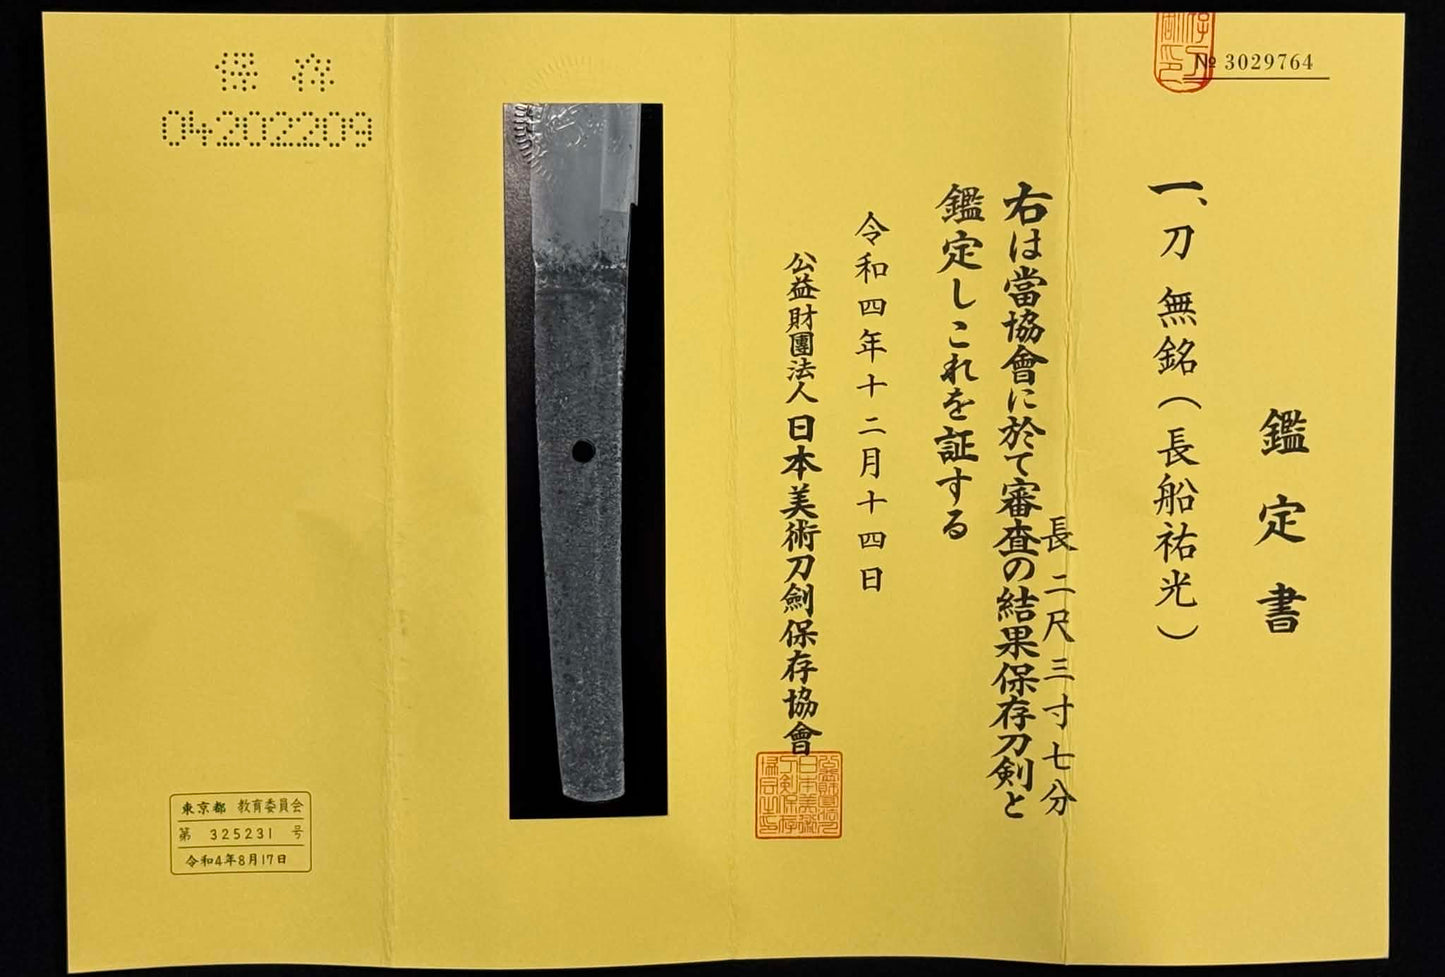 № 3029764
鑑定書
一、刀 無銘(長船祐光)
長 二尺三寸七分
右は當協會に於て審査の結果保存刀剣と
鑑定しこれを証する
令和四年十二月十四日
公益財團法人 日本美術刀劍保存協會
保存
04202209
東京都 教育委員会
第 325231 号
令和4年8月17日